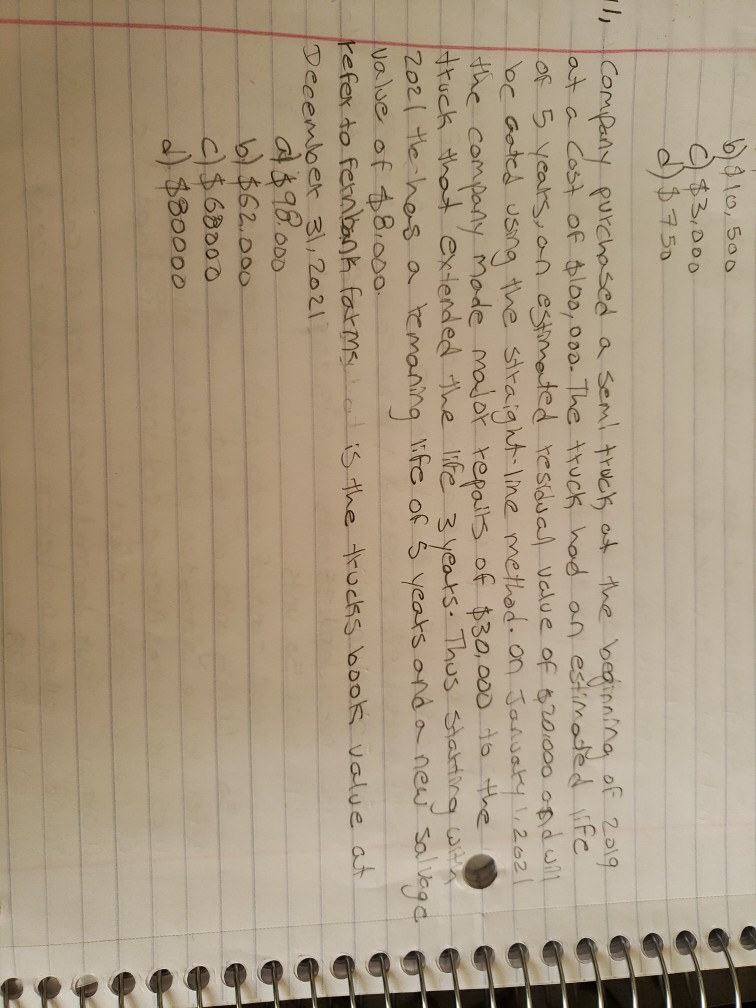 b) $10,500
c) $3,000
d) $750
11, Company purchased a semi truck at the beginning of 2019
at a cost of $100,000. The truck had an estimated life
of 5 years, an estimated residual value of $20,000 and will
be ated using the straight-line method. on January 1, 2021
the company made major repairs of $30,000 to the
truck that extended the life 3 years. Thus starting with
2021 the has a remaning life of 5 years and a new salvage
value of $8,000.
refer to fernbank farms is the trucks book value at
December 31, 2021
a) $98.000
b) $62,000
c) $68000
d) $80000